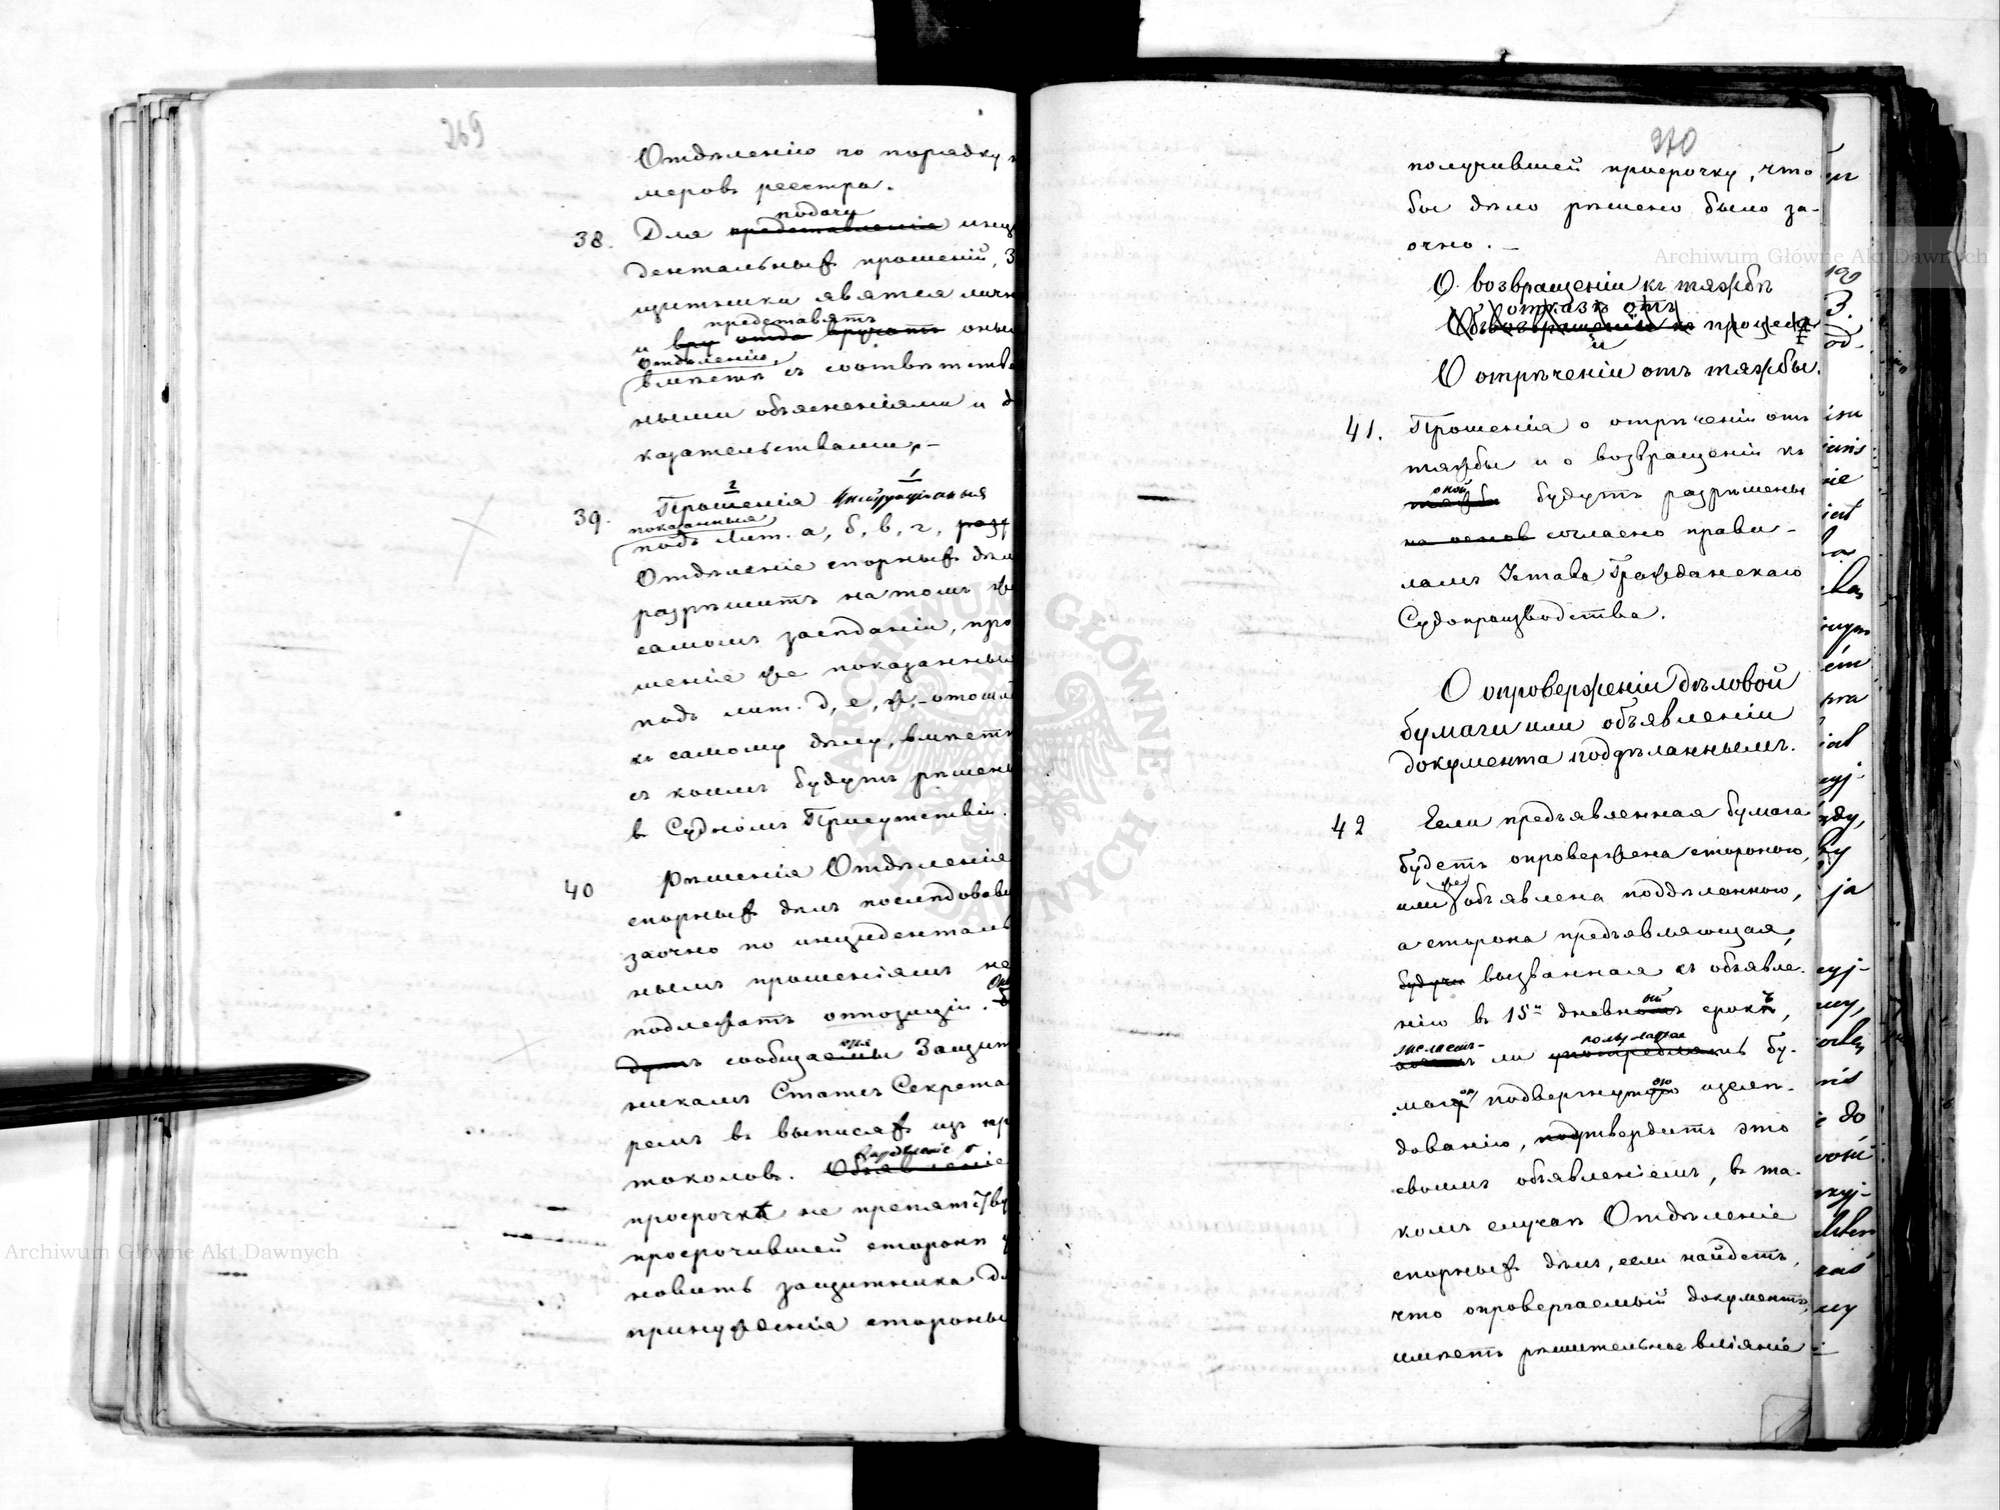 269
Отдѣленію по порядку
меровъ реестра.
подачи
38. Для представленія инци
дентальныхъ прошеній, З
щитники явятся личн
представятъ
и вручатъ оныя
Отдѣленію,
вмѣстѣ съ соотвѣтстве
ными объясненіями и д
казательствами,-
2 1
39. Прошенія
показанныя
подъ Лит. а, б, в, г, разр
Отдѣленіе спорныхъ дѣл
разрѣшитъ на томъ же
самомъ засѣданіи, про
шенія же показанныя
подъ лит. д, е, ж,-
къ самому дѣлу, вмѣстѣ
съ коимъ будутъ рѣшены
въ Судномъ Присутствіи.
40 Рѣшенія Отдѣленія
спорныхъ дѣлъ послѣдовавш
заочно по инциденталь
нымъ прошеніямъ не
подлежатъ оппозиціи.
сообщаемы Защит
никамъ Статсъ Секрета
ремъ въ выписяхъ изъ пр
токоловъ. Объявленіе
просрочки не препятству
просрочившей сторонѣ
новить защитника д
принужденія стороны
270
получившей просрочку, что
бы дѣло рѣшено было за-
очно. -
О возвращеніи къ тяжбѣ
отказѣ отъ
О возвращеніи къ процесса
и
О отрѣченіи отъ тяжбы.
41. Прошенія о отрѣченіи отъ
тяжбы и о возвращеніи къ
оной
тяжбѣ будутъ разрѣшены
на основ согласно прави-
ламъ Устава Гражданскаго
Судопроизводства.
О опроверженіи дѣловой
бумаги или объявленіи
документа поддѣланнымъ.
42 Если предъявленная бумага
будетъ опровержена стороною,
или объявлена поддѣланною,
а сторона предъявляющая,
будучи вызванная къ объявле-
нію въ 15ти дневный срокъ,
желаетъ-
ли употреблять бу-
магу подвергнутую изслѣ-
дованію, подтвердитъ это
своимъ объявленіемъ, въ та-
комъ случаѣ Отдѣленіе
спорныхъ дѣлъ, если найдетъ,
что опровергаемый документъ,
имѣетъ рѣшительное вліяніе
Archiwum Główne Akt Dawnych
Archiwum Główne Akt Dawnych
ARCHIWUM GŁÓWNE AKT DAWNYCH